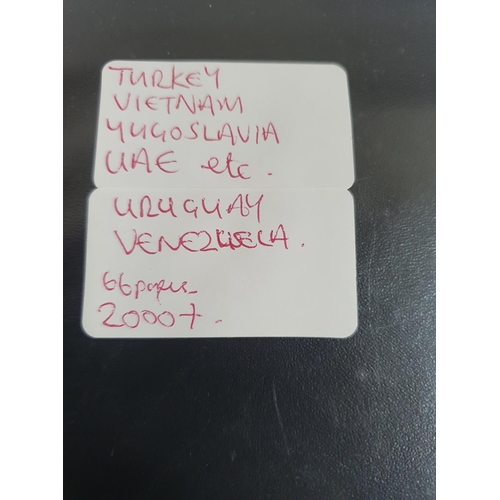 TURKEY
VIETNAM
YUGOSLAVIA
UAE etc.
URUGUAY
VENEZUELA.
66 pages
2000+.